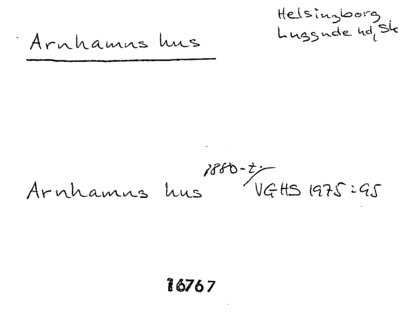 Helsingborg
Luggude hd, Sk
Arnhamns hus
1880-t.
Arnhamns hus VGHS 1975:95
16767